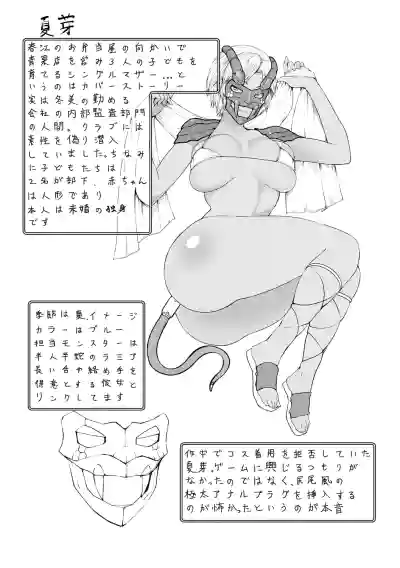 夏芽
春江のお弁当屋の向かいで
青果店を営み3人の子どもを
育てるシングルマザー…と
いうのはカバーストーリー
実は冬美の勤める
会社の内部監査部門
の人間。クラブには
素性を偽り潜入
していました。ちなみ
に子どもたちは
2名が部下、赤ちゃん
は人形であり
本人は未婚の独身
です
季節は夏。イメージ
カラーはブルー
担当モンスターは
半人半蛇のラミア
長い舌や絡め手を
得意とする彼女と
リンクしてます
作中でコス着用を拒否していた
夏芽。ゲームに興じるつもりが
なかったのではなく、尻尾風の
極太アナルプラグを挿入する
のが怖かったというのが本音